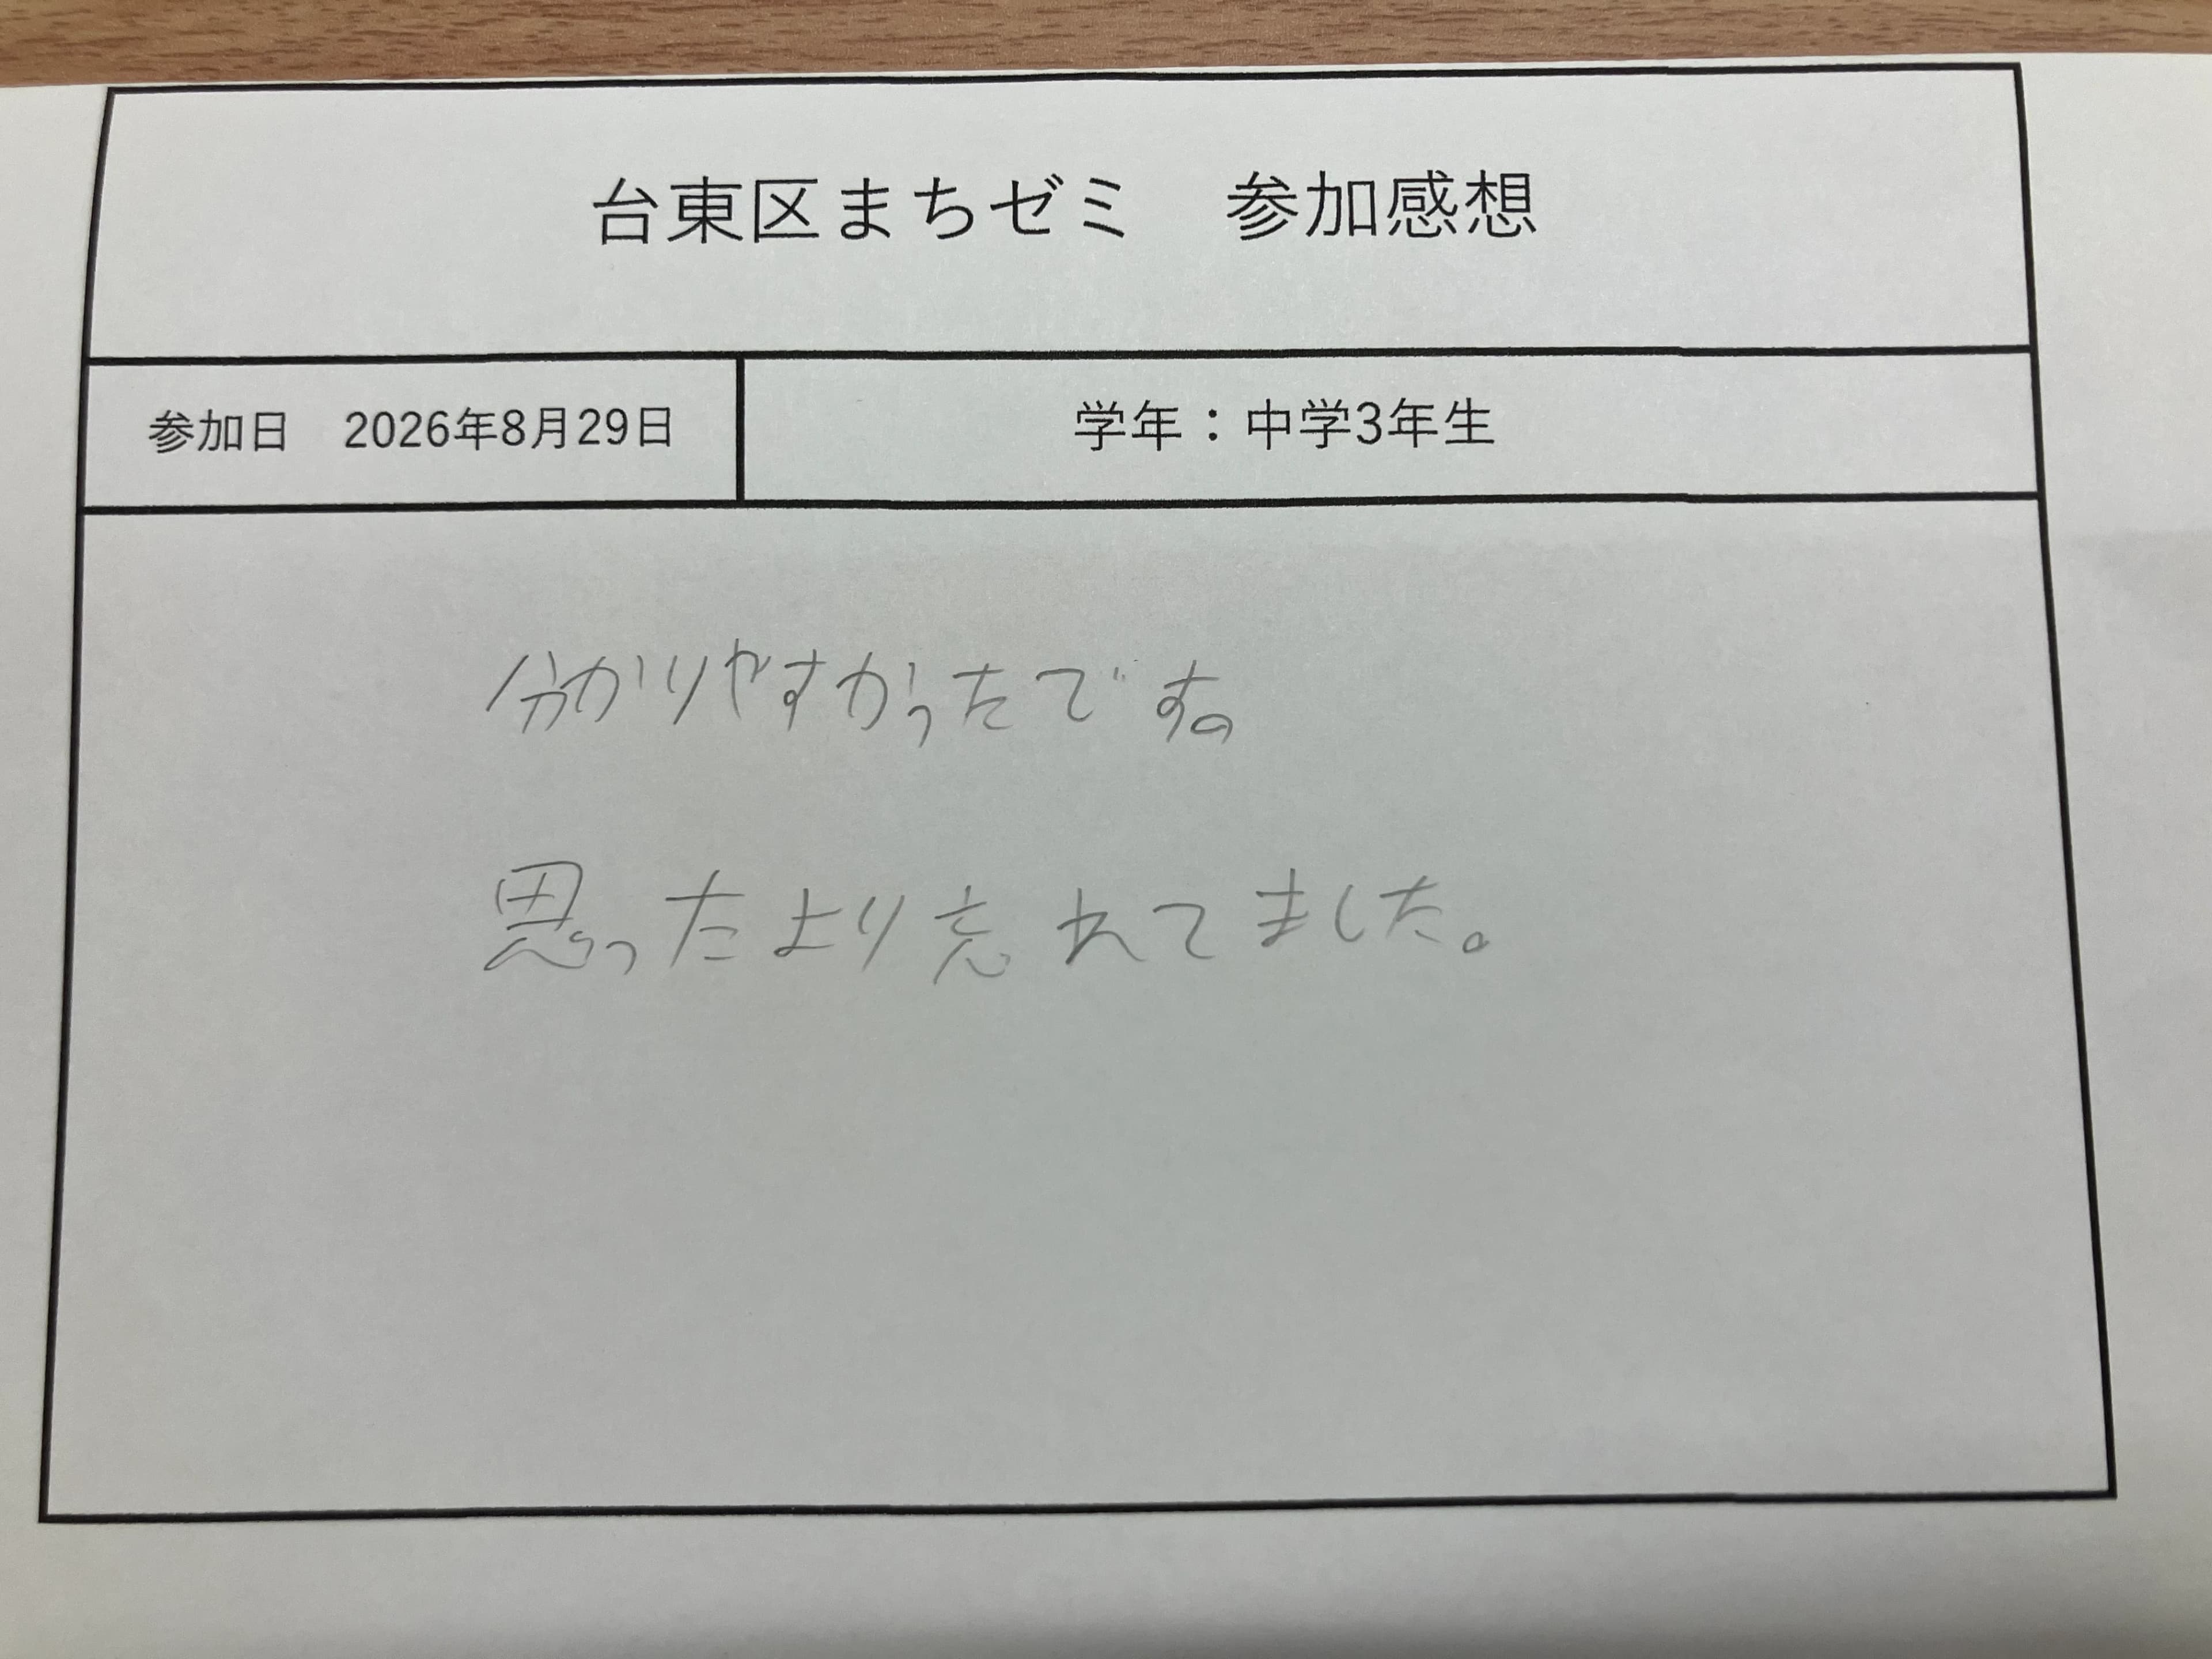 台東区まちゼミ　参加感想
参加日　2026年8月29日
学年：中学3年生
分かりやすかったです。
思ったより忘れてました。